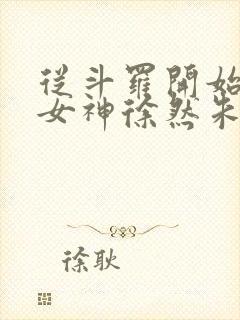 從斗羅開始
女神徐然朱
徐耿